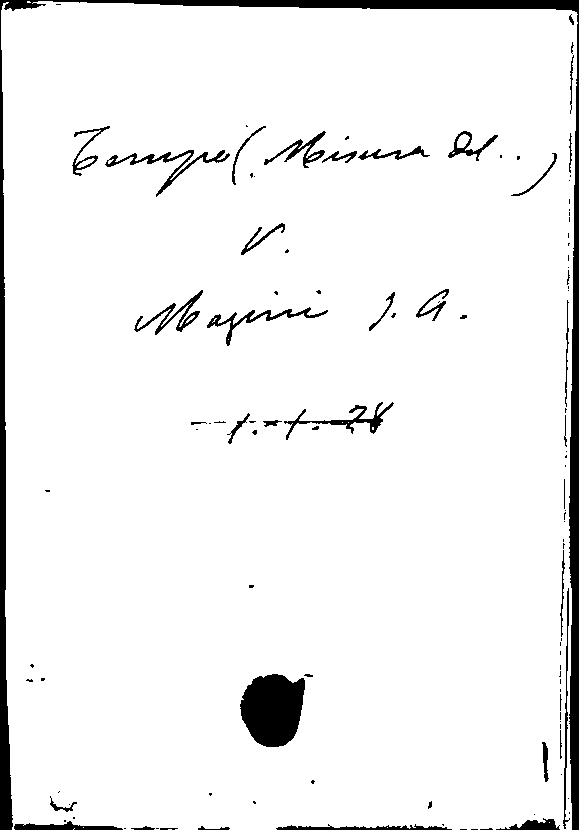 Tempo (Misura del..)
V.
Magini J. A.
1.-1.28